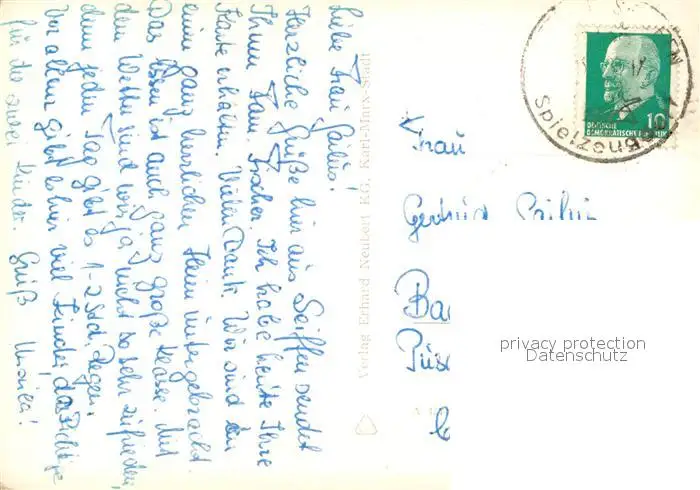 Liebe Frau
Herzliche Grüße hier aus Seiffen sendet
Ihnen Fam. Fischer. Ich habe heute Ihre
Karte erhalten. Vielen Dank. Wir sind in
einem ganz herrlichen Heim untergebracht.
Das Essen ist auch ganz große Klasse. Mit
dem Wetter sind wir ja nicht so sehr zufrieden,
denn jeden Tag gibt es 1-2 Std. Regen.
Vor allem gibt es hier viel Kinder, das richtige
für die zwei Kinder. Gruß Monika!
Verlag Erhard Neubert KG, Karl-Marx-Stadt
Frau
Gertrud
Ba
privacy protection
Datenschutz
DEUTSCHE
DEMOKRATISCHE REPUBLIK
10
Spielzeug